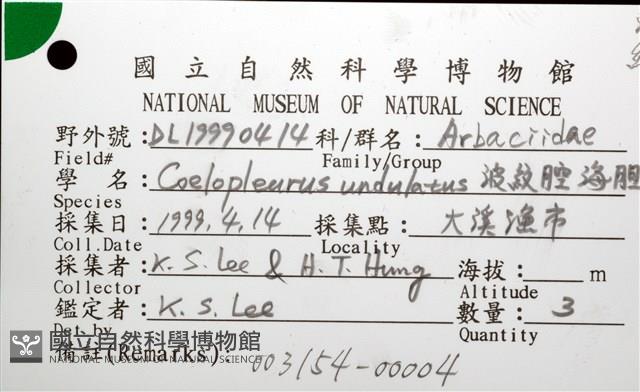 國立自然科學博物館
NATIONAL MUSEUM OF NATURAL SCIENCE
野外號：DL19990414 科/群名：Arbaciidae
Field# Family/Group
學 名：Coelopleurus undulatus 波紋腔海胆
Species
採集日：1999.4.14 採集點：大溪漁市
Coll.Date Locality
採集者：K.S.Lee & H.T.Hung 海拔：____m
Collector Altitude
鑑定者：K.S.Lee 數量：3
Det.by Quantity
國立自然科學博物館
NATIONAL MUSEUM OF NATURAL SCIENCE
備註(Remarks)：003154-00004